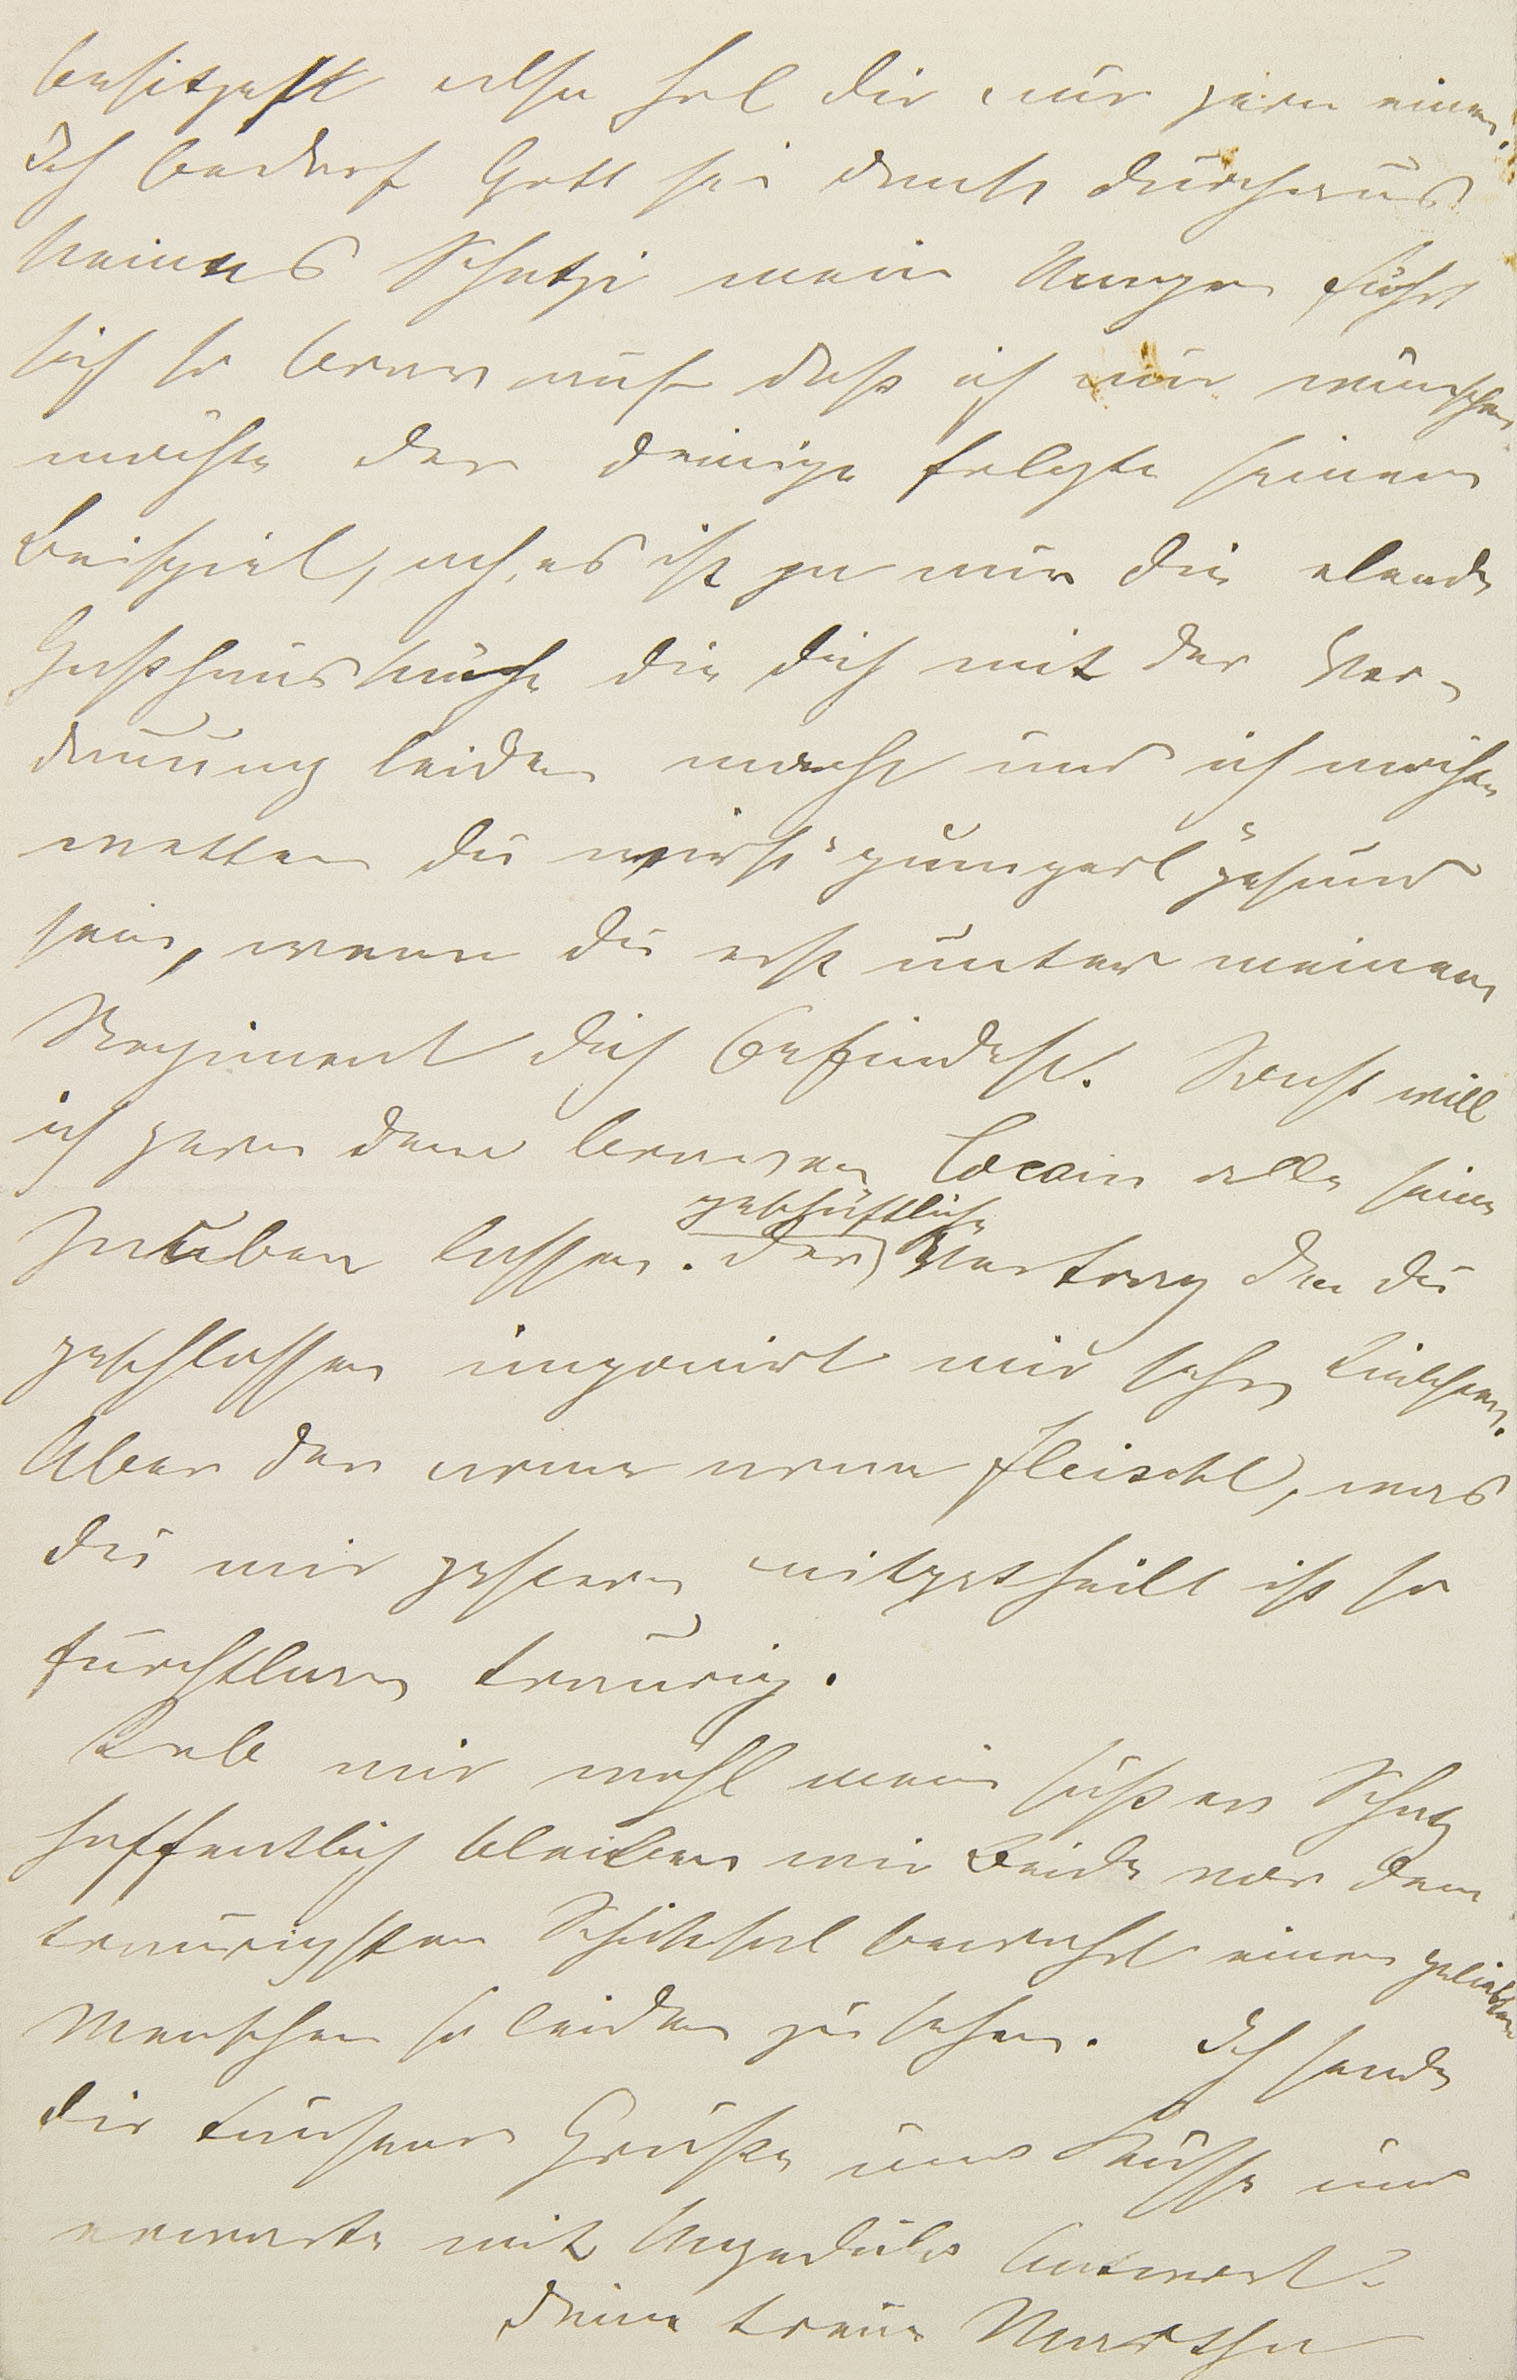 besitzest also hol dir nur gern einen.
Ich bedarf Gott sei dank durchaus
keines Schatzi mein Magen führt
sich so brav auf daß ich nur wünschen
möchte der deinige folgte seinem
Beispiel, ach, es ist ja nur die elende
Gasthausküche die dich mit der Ver-
dauung leiden macht und ich möchte
wetten du wirst pumperl gesund
sein, wenn du erst unter meinem
Regiment dich befindest. Sonst will
ich gern dem braven Cocain alle seine
Zauber lassen. Der geschäftliche Vertrag den du
geschlossen imponirt mir sehr Liebchen.
Aber der arme arme Fleischl, was
du mir gestern mitgetheilt ist so
furchtbar traurig.
Leb mir wohl mein süßer Schatz
hoffentlich bleiben wir Beide vor dem
traurigsten Schicksal bewahrt einen geliebten
Menschen so leiden zu sehen. Ich sende
dir tausend Grüße und Küsse und
erwarte mit Ungeduld Antwort.
Deine treue Martha